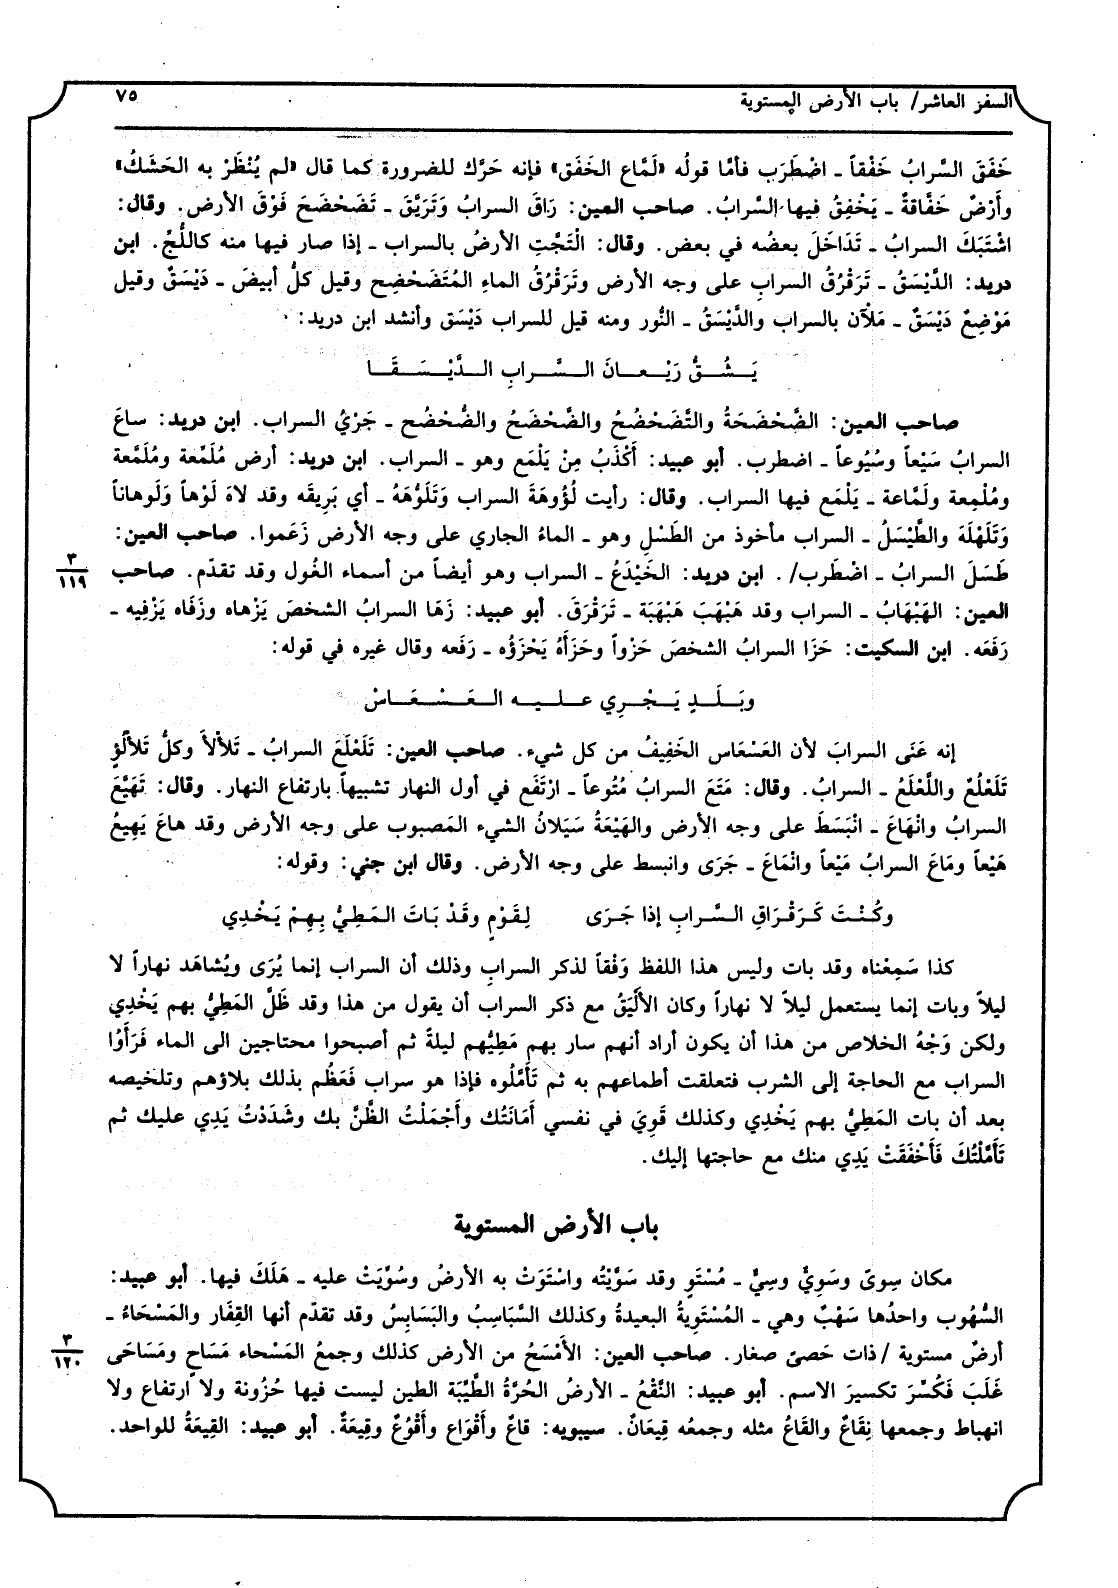 السفر العاشر/ باب الأرض المستوية ٧٥
خَفَقَ السَّرابُ خَفْقاً ـ اضْطَرَب فأمَّا قولُه «لَمَّاع الخَفَق» فإنه حَرَّك للضرورة كما قال «لم يُنْظَرْ به الحَشَكُ»
وأَرْضٌ خَفَّاقةٌ ـ يَخْفِقُ فيها السَّرابُ. صاحب العين: رَاقَ السرابُ وَتَرَيَّقَ ـ تَضَحْضَحَ فَوْقَ الأرض. وقال:
اشْتَبَكَ السرابُ ـ تَدَاخَلَ بعضُه في بعض. وقال: الْتَجَّتِ الأرضُ بالسراب ـ إذا صار فيها منه كاللُّجِّ. ابن
دريد: الدَّيْسَقُ ـ تَرَقْرُقُ السرابِ على وجه الأرض وتَرَقْرُقُ الماءِ المُتَضَحْضِح وقيل كلُّ أبيضَ ـ دَيْسَقٌ وقيل
مَوْضِعٌ دَيْسَقٌ ـ مَلْآن بالسراب والدَّيْسَقُ ـ النُّور ومنه قيل للسراب دَيْسَق وأنشد ابن دريد:
يَـشُـقُّ رَيْـعـانَ الـسَّـرابِ الـدَّيْـسَـقَـا
صاحب العين: الضَّحْضَحَةُ والتَّضَحْضُحُ والضَّحْضَحُ والضُّحْضُح ـ جَرْيُ السراب. ابن دريد: ساعَ
السرابُ سَيْعاً وسُيُوعاً ـ اضطرب. أبو عبيد: أَكْذَبُ مِنْ يَلْمَع وهو ـ السراب. ابن دريد: أرض مُلَمِّعة ومُلَمَّعة
ومُلْمِعة ولَمَّاعة ـ يَلْمَع فيها السراب. وقال: رأيت لُؤُوهَةَ السراب وَتَلَوُّهَهُ ـ أي بَرِيقَه وقد لاهَ لَوْهاً وَلَوهاناً
وَتَلَهْلَهَ والطَّيْسَلُ ـ السراب مأخوذ من الطَسْلِ وهو ـ الماءُ الجاري على وجه الأرض زَعَموا. صاحب العين:
طَسَلَ السرابُ ـ اضْطرب/. ابن دريد: الخَيْدَعُ ـ السراب وهو أيضاً من أسماء الغُول وقد تقدّم. صاحب
٣
١١٩
العين: الهَبْهَابُ ـ السراب وقد هَبْهَبَ هَبْهَبَة ـ تَرَقْرَقَ. أبو عبيد: زَهَا السرابُ الشخصَ يَزْهاه وزَفَاه يَزْفِيه ـ
رَفَعَه. ابن السكيت: حَزَا السرابُ الشخصَ حَزْواً وحَزَأَهُ يَحْزَؤُه ـ رَفَعه وقال غيره في قوله:
وبَـلَـدٍ يَـجْـرِي عـلـيـه الـعَـسْـعَـاسْ
إنه عَنَى السرابَ لأن العَسْعَاس الخَفِيفُ من كل شيء. صاحب العين: تَلَعْلَعَ السرابُ ـ تَلأْلأَ وكلُّ تَلأْلُؤٍ
تَلَعْلُعٌ واللَّعْلَعُ ـ السرابُ. وقال: مَتَعَ السرابُ مُتُوعاً ـ ارْتَفَع في أول النهار تشبيهاً بارتفاع النهار. وقال: تَهَيَّعَ
السرابُ وانْهَاعَ ـ انْبَسَطَ على وجه الأرض والهَيْعَةُ سَيَلانُ الشيء المَصبوب على وجه الأرض وقد هاعَ يَهِيعُ
هَيْعاً ومَاعَ السرابُ مَيْعاً وانْمَاعَ ـ جَرَى وانبسط على وجه الأرض. وقال ابن جني: وقوله:
وكُـنْـتَ كَـرَقْـرَاقِ الـسَّـرابِ إذا جَـرَى لِـقَـوْمٍ وقَـدْ بَـاتَ الـمَـطِيُّ بِـهِـمْ يَـخْـدِي
كذا سَمِعْناه وقد بات وليس هذا اللفظ وَفْقاً لذكر السرابِ وذلك أن السراب إنما يُرَى ويُشاهَد نهاراً لا
ليلاً وبات إنما يستعمل ليلاً لا نهاراً وكان الأَلْيَقُ مع ذكر السراب أن يقول من هذا وقد ظَلَّ المَطِيُّ بهم يَخْدِي
ولكن وَجْهُ الخلاص من هذا أن يكون أراد أنهم سار بهم مَطِيُّهم ليلةً ثم أصبحوا محتاجين الى الماء فَرَأَوُا
السراب مع الحاجة إلى الشرب فتعلقت أطماعهم به ثم تَأَمَّلُوه فإذا هو سراب فَعَظُم بذلك بلاؤهم وتلخيصه
بعد أن بات المَطِيُّ بهم يَخْدِي وكذلك قَوِيَ في نفسي أَمَانَتُك وأَجْمَلْتُ الظَّنَّ بك وشَدَدْتُ يَدِي عليك ثم
تَأَمَّلْتُكَ فَأَخْفَقَتْ يَدِي منك مع حاجتها إليك.
باب الأرض المستوية
مكان سِوىً وسَوِيٌّ وسِيٌّ ـ مُسْتَوٍ وقد سَوَّيْتُه واسْتَوَتْ به الأرضُ وسُوِّيَتْ عليه ـ هَلَكَ فيها. أبو عبيد:
السُّهُوب واحدُها سَهْبٌ وهي ـ المُسْتَوِيةُ البعيدةُ وكذلك السَّبَاسِبُ والبَسَابِسُ وقد تقدّم أنها القِفَار والمَسْحَاءُ ـ
أرضٌ مستوية /ذات حَصىً صغار. صاحب العين: الأَمْسَحُ من الأرض كذلك وجمعُ المَسْحاء مَسَاحٍ ومَسَاحَى
٣
١٢٠
غَلَبَ فَكُسِّرَ تكسيرَ الاسم. أبو عبيد: النَّقْعُ ـ الأرضُ الحُرَّةُ الطَّيِّبَة الطين ليست فيها حُزُونة ولا ارتفاع ولا
انهباط وجمعها نِقَاعٌ والقَاعُ مثله وجمعُه قِيعَانٌ. سيبويه: قاعٌ وأَقْوَاع وأَقْوُعٌ وقِيعَةٌ. أبو عبيد: القِيعَةُ للواحد.